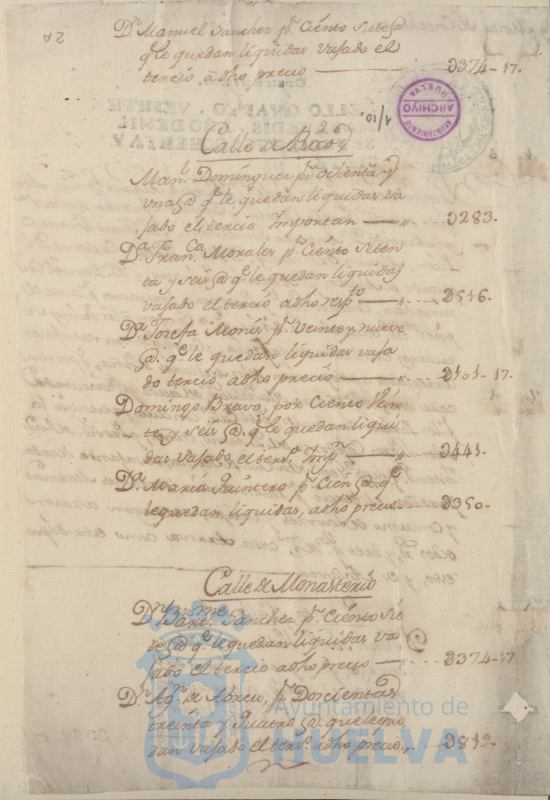 Dn Manuel Sanchez pr. Ciento siete @
qe le quedan liquidas vajado el
tercio adho precio — 374-17.
Calle de
Manl. Dominguez pr. ochenta y
una @ qe. le quedan liquidas va
jado el tercio Importan — 283.
Da. Franca. Morales pr. Ciento seten
ta y seis @ qe. le quedan liquidas
vajado el tercio adho respto — 616.
Da. Josefa Monis pr. Veinte y nueve
@. qe le quedan liquidas vaja
do tercio adho precio — 101-17.
Domingo Bravo, por Ciento Vein
te y seis @ qe le quedan liqui
das vajado el terzo. Impn — 441.
Da. Maria Quintero pr. Cien @ qe
le quedan liquidas, adho precio — 350-
Calle de Monasterio
Dn Barme. Sanchez pr. Ciento sie
te @ qe le quedan liquidas va
jado el tercio adho precio — 374-17
Dn. Agn. de Abreu, pr. Doscientas
treinta y quatro @ que le que
dan vajado el terzo. adho precio. 819-
AYUNTAMIENTO
ARCHIVO
HUELVA
Ayuntamiento de
HUELVA